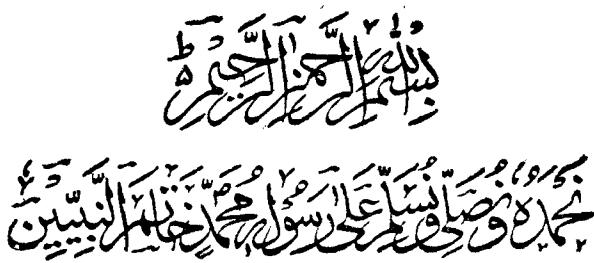 بِسْمِ اللّٰهِ الرَّحْمٰنِ الرَّحِيْمِ ط
نَحْمَدُهٗ وَنُصَلِّیْ وَنُسَلِّمُ عَلٰی رَسُوْلِهٖ مُحَمَّدٍ خَاتَمِ النَّبِيِّيْنَ